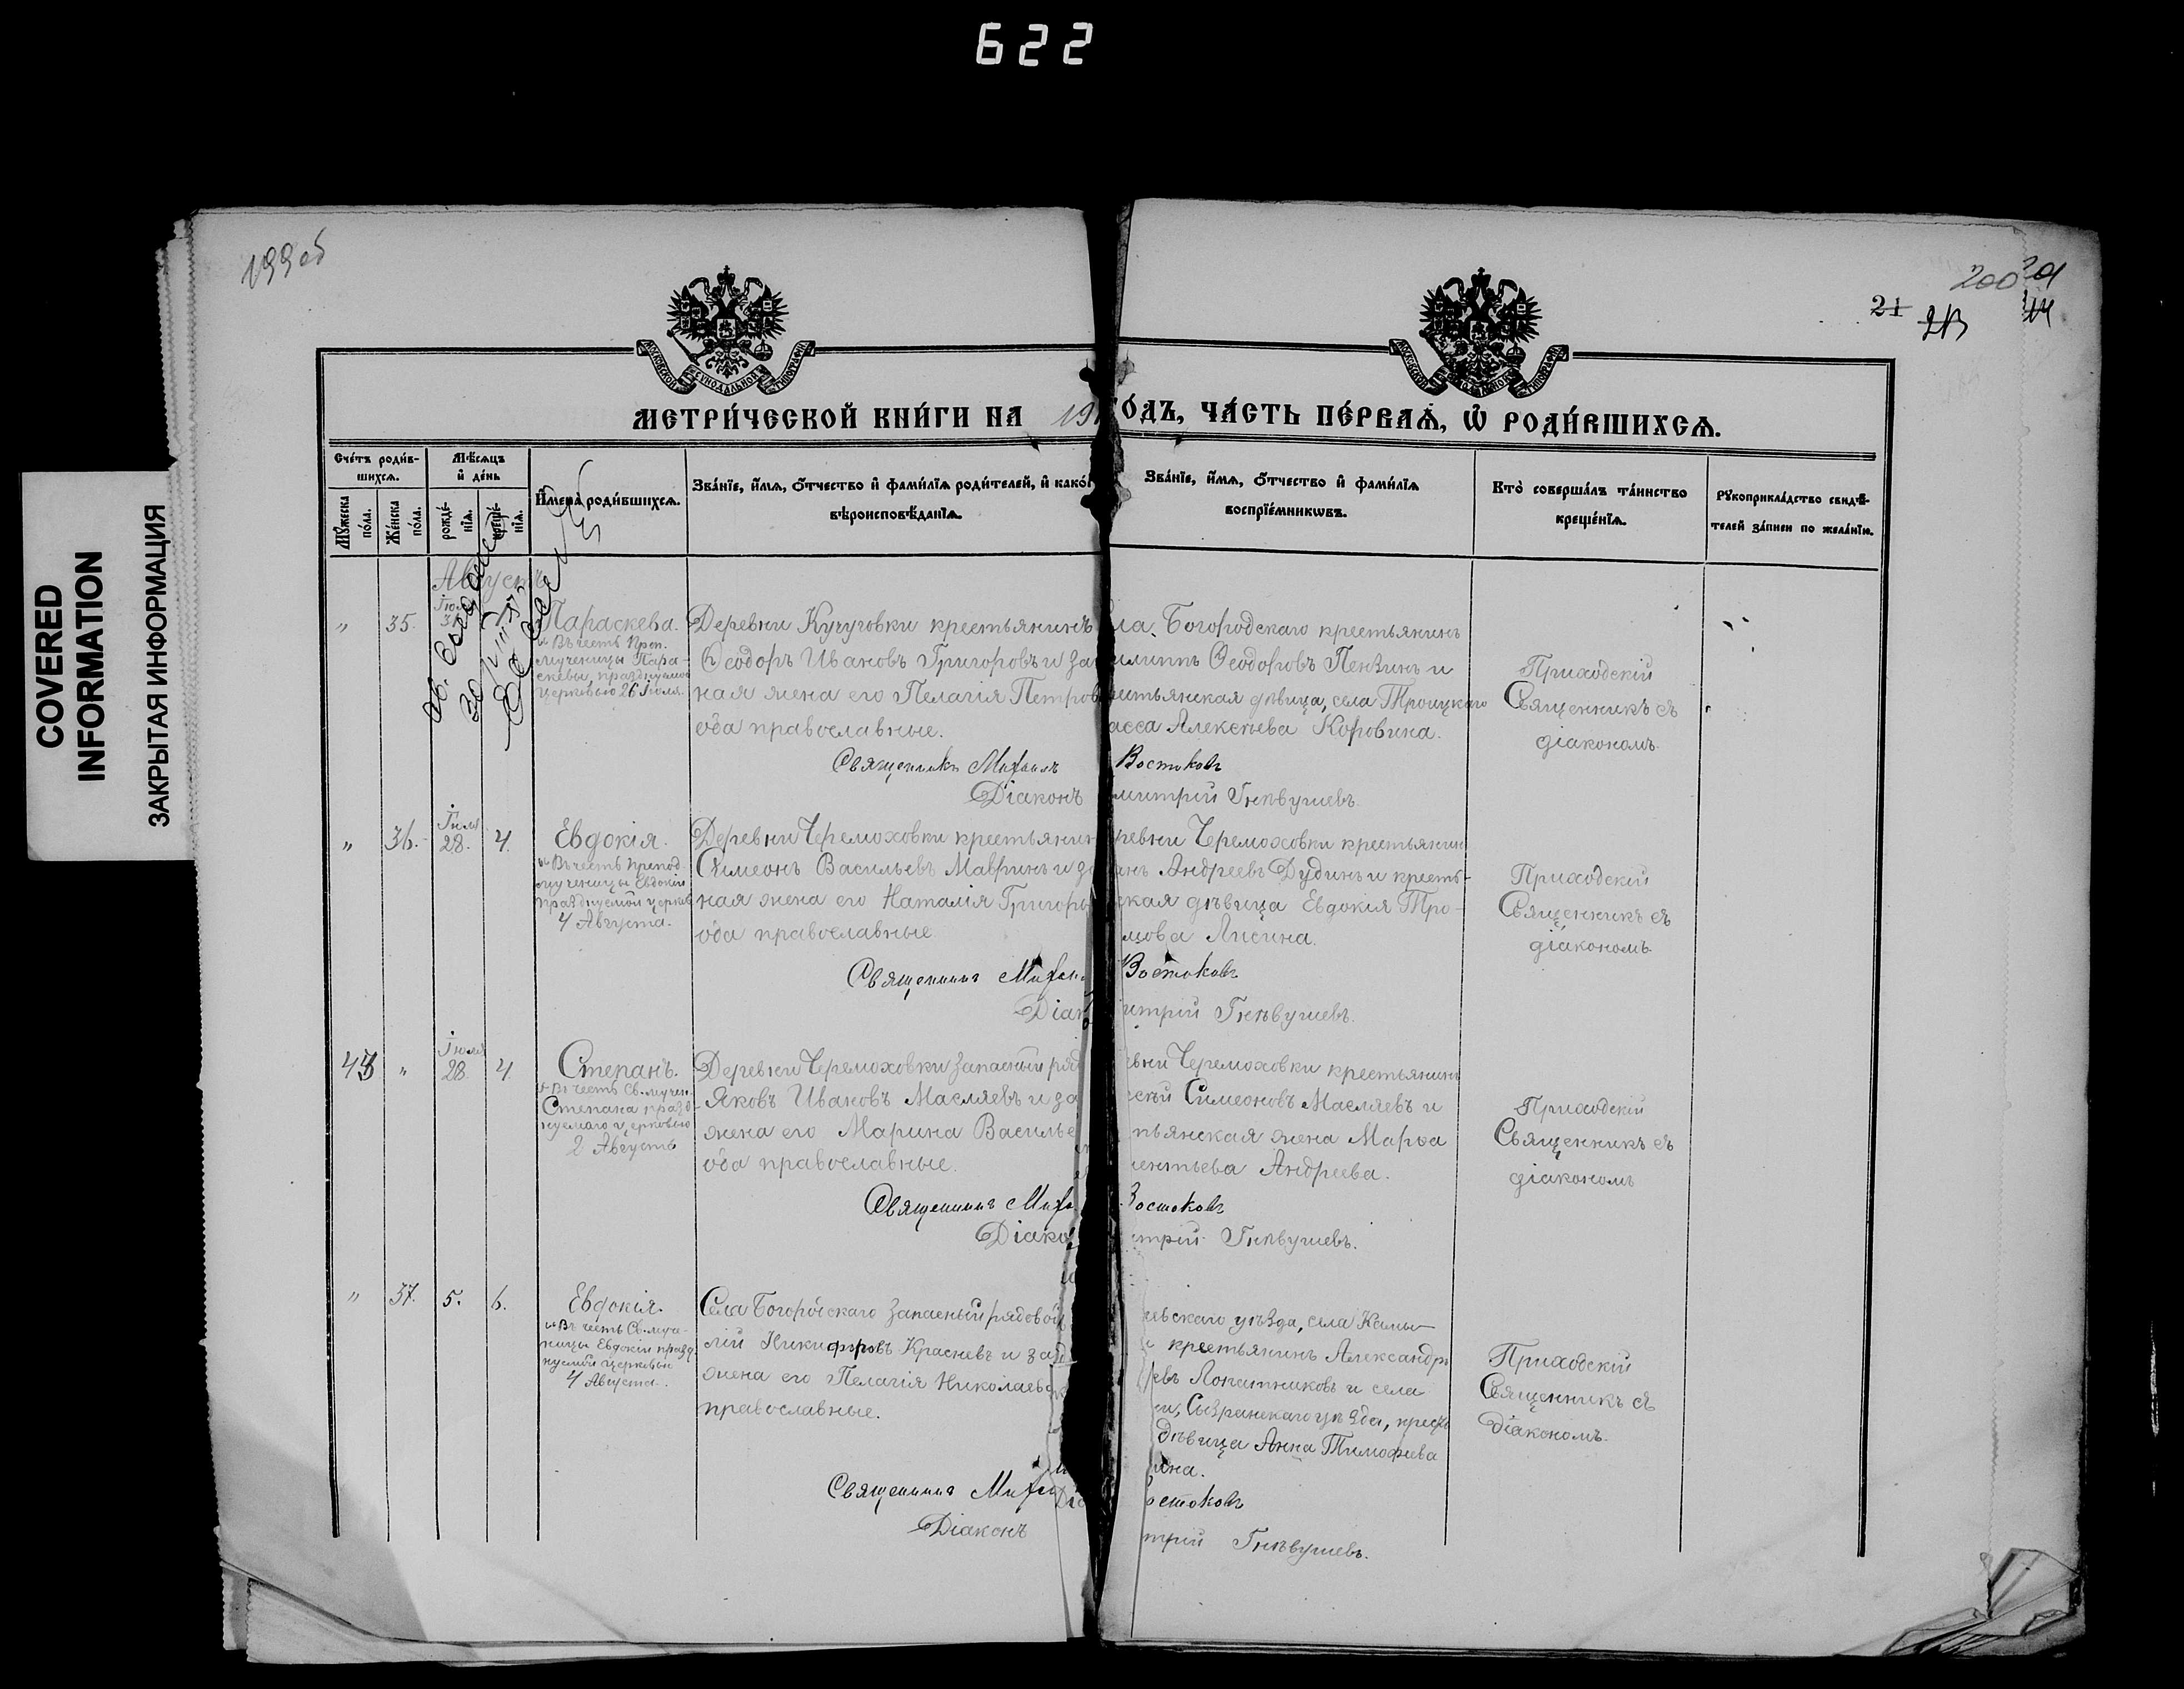 622
COVERED
INFORMATION
ЗАКРЫТАЯ ИНФОРМАЦИЯ
199об
200
21
МОСКОВСКОЙ СУНОДАЛЬНОЙ ТИПОГРАФІИ
МЕТРИ́ЧЕСКОЙ КНИ́ГИ НА 19
ГО́ДЪ, ЧА́СТЬ ПЕ́РВАѦ, Ѿ РОДИ́ВШИХСѦ.
Сче́тъ роди́в-
шихсѧ.
Мꙋ́жеска по́ла.
Же́нска по́ла.
Мѣ́сѧцъ
и҆ де́нь
рожде́-
нїѧ.
креще́-
нїѧ.
И҆мена̀ роди́вшихсѧ.
Зва́нїе, и҆́мѧ, ѻ҆́тчество и҆ фами́лїѧ роди́телей, и҆ како́
вѣ́роисповѣ́данїѧ.
Зва́нїе, и҆́мѧ, ѻ҆́тчество и҆ фами́лїѧ
воспрїе́мникѡвъ.
Кто̀ соверша́лъ та́инство
креще́нїѧ.
Рꙋкоприкла́дство свидѣ́-
телей за́писи по жела́нїю.
Августъ
„ 35. Іюля 31
Параскева.
Въ честь Преп.
мученицы Пара-
скевы, празднуемой
церковью 26 Іюля.
Деревни Кучуговки крестьянинъ
Ѳеодоръ Ивановъ Григоровъ и за
ная жена его Пелагія Петров
оба православные.
Священникъ Михаилъ
Діаконъ
ла Богородскаго крестьянинъ
илиппъ Ѳеодоровъ Пензинъ и
естьянская дѣвица, села Троицкаго
асса Алексѣева Коровина.
Востоковъ
митрій Гнѣвушевъ.
Приходскій
Священникъ съ
діакономъ.
„ 36. Іюля 28. 4.
Евдокія.
Въ честь препод.
мученицы Евдокіи
празднуемой церков
4 Августа.
Деревни Черемоховки крестьянин
Симеонъ Васильевъ Мавринъ и за
ная жена его Наталія Григорь
оба православные
Священникъ Михаи
Діак
ревни Черемоховки крестьянин
анъ Андреевъ Дудинъ и кресть-
ская дѣвица Евдокія Тро-
мова Лисина.
Востоковъ
итрій Гнѣвушевъ.
Приходскій
Священникъ съ
діакономъ.
43 „ Іюля 28. 4.
Степанъ.
Въ честь Св. мучен.
Степана празд-
нуемаго церковью
2 Августа
Деревни Черемоховки запасный ряд
Яковъ Ивановъ Масляевъ и за
жена его Марина Василье
оба православные.
Священникъ Миха
Діако
вни Черемоховки крестьянин
ксѣй Симеоновъ Масляевъ и
тьянская жена Марѳа
ентьева Андреева.
Востоковъ
трій Гнѣвушевъ.
Приходскій
Священникъ съ
діакономъ
„ 37. 5. 6.
Евдокія.
Въ честь Св. муче-
ницы Евдокіи празд-
нуемой церковью
4 Августа.
Села Богородскаго запасный рядовой
лій Никифоровъ Красневъ и за
жена его Пелагія Николаев
православные.
Священникъ Михаи
Діаконъ
евскаго уѣзда, села Камы-
крестьянинъ Александръ
евъ Лопатниковъ и села
Сызранскаго уѣзда, крест
дѣвица Анна Тимофеева
ина.
остоковъ
трій Гнѣвушевъ.
Приходскій
Священникъ съ
діакономъ.